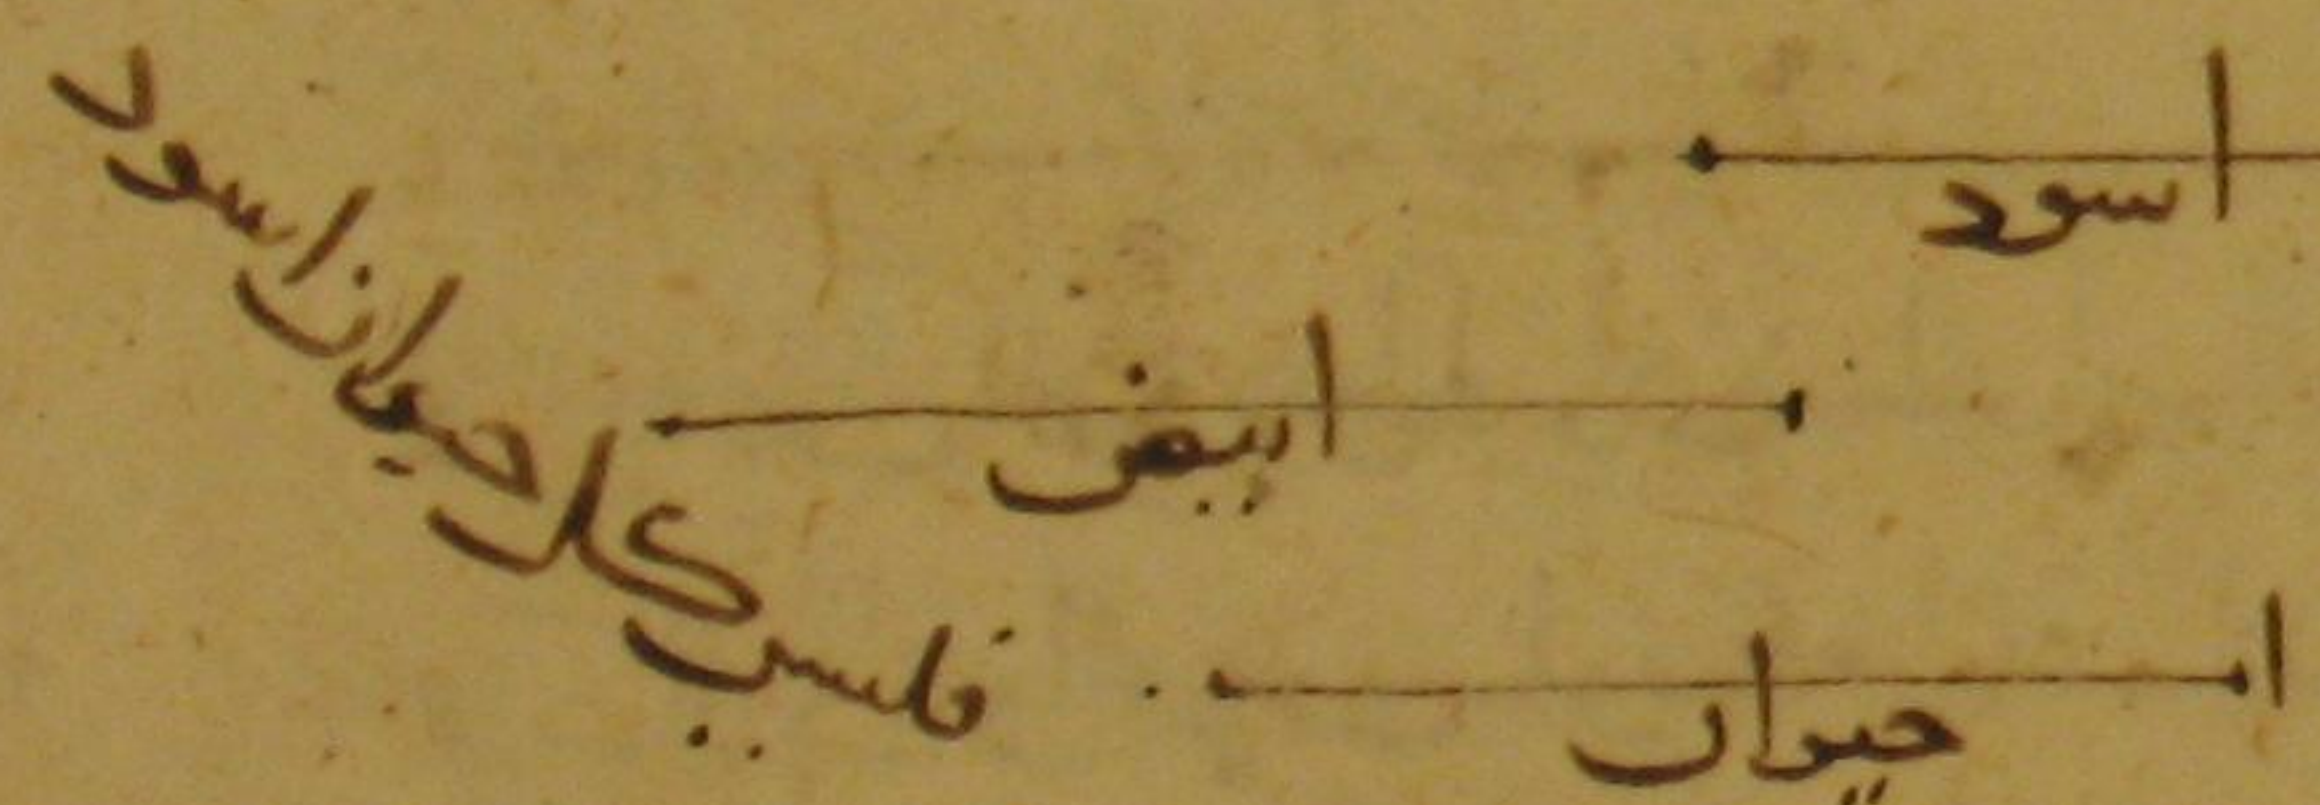 اسود
ابيض
حيوان
فليس كل حيوان اسود